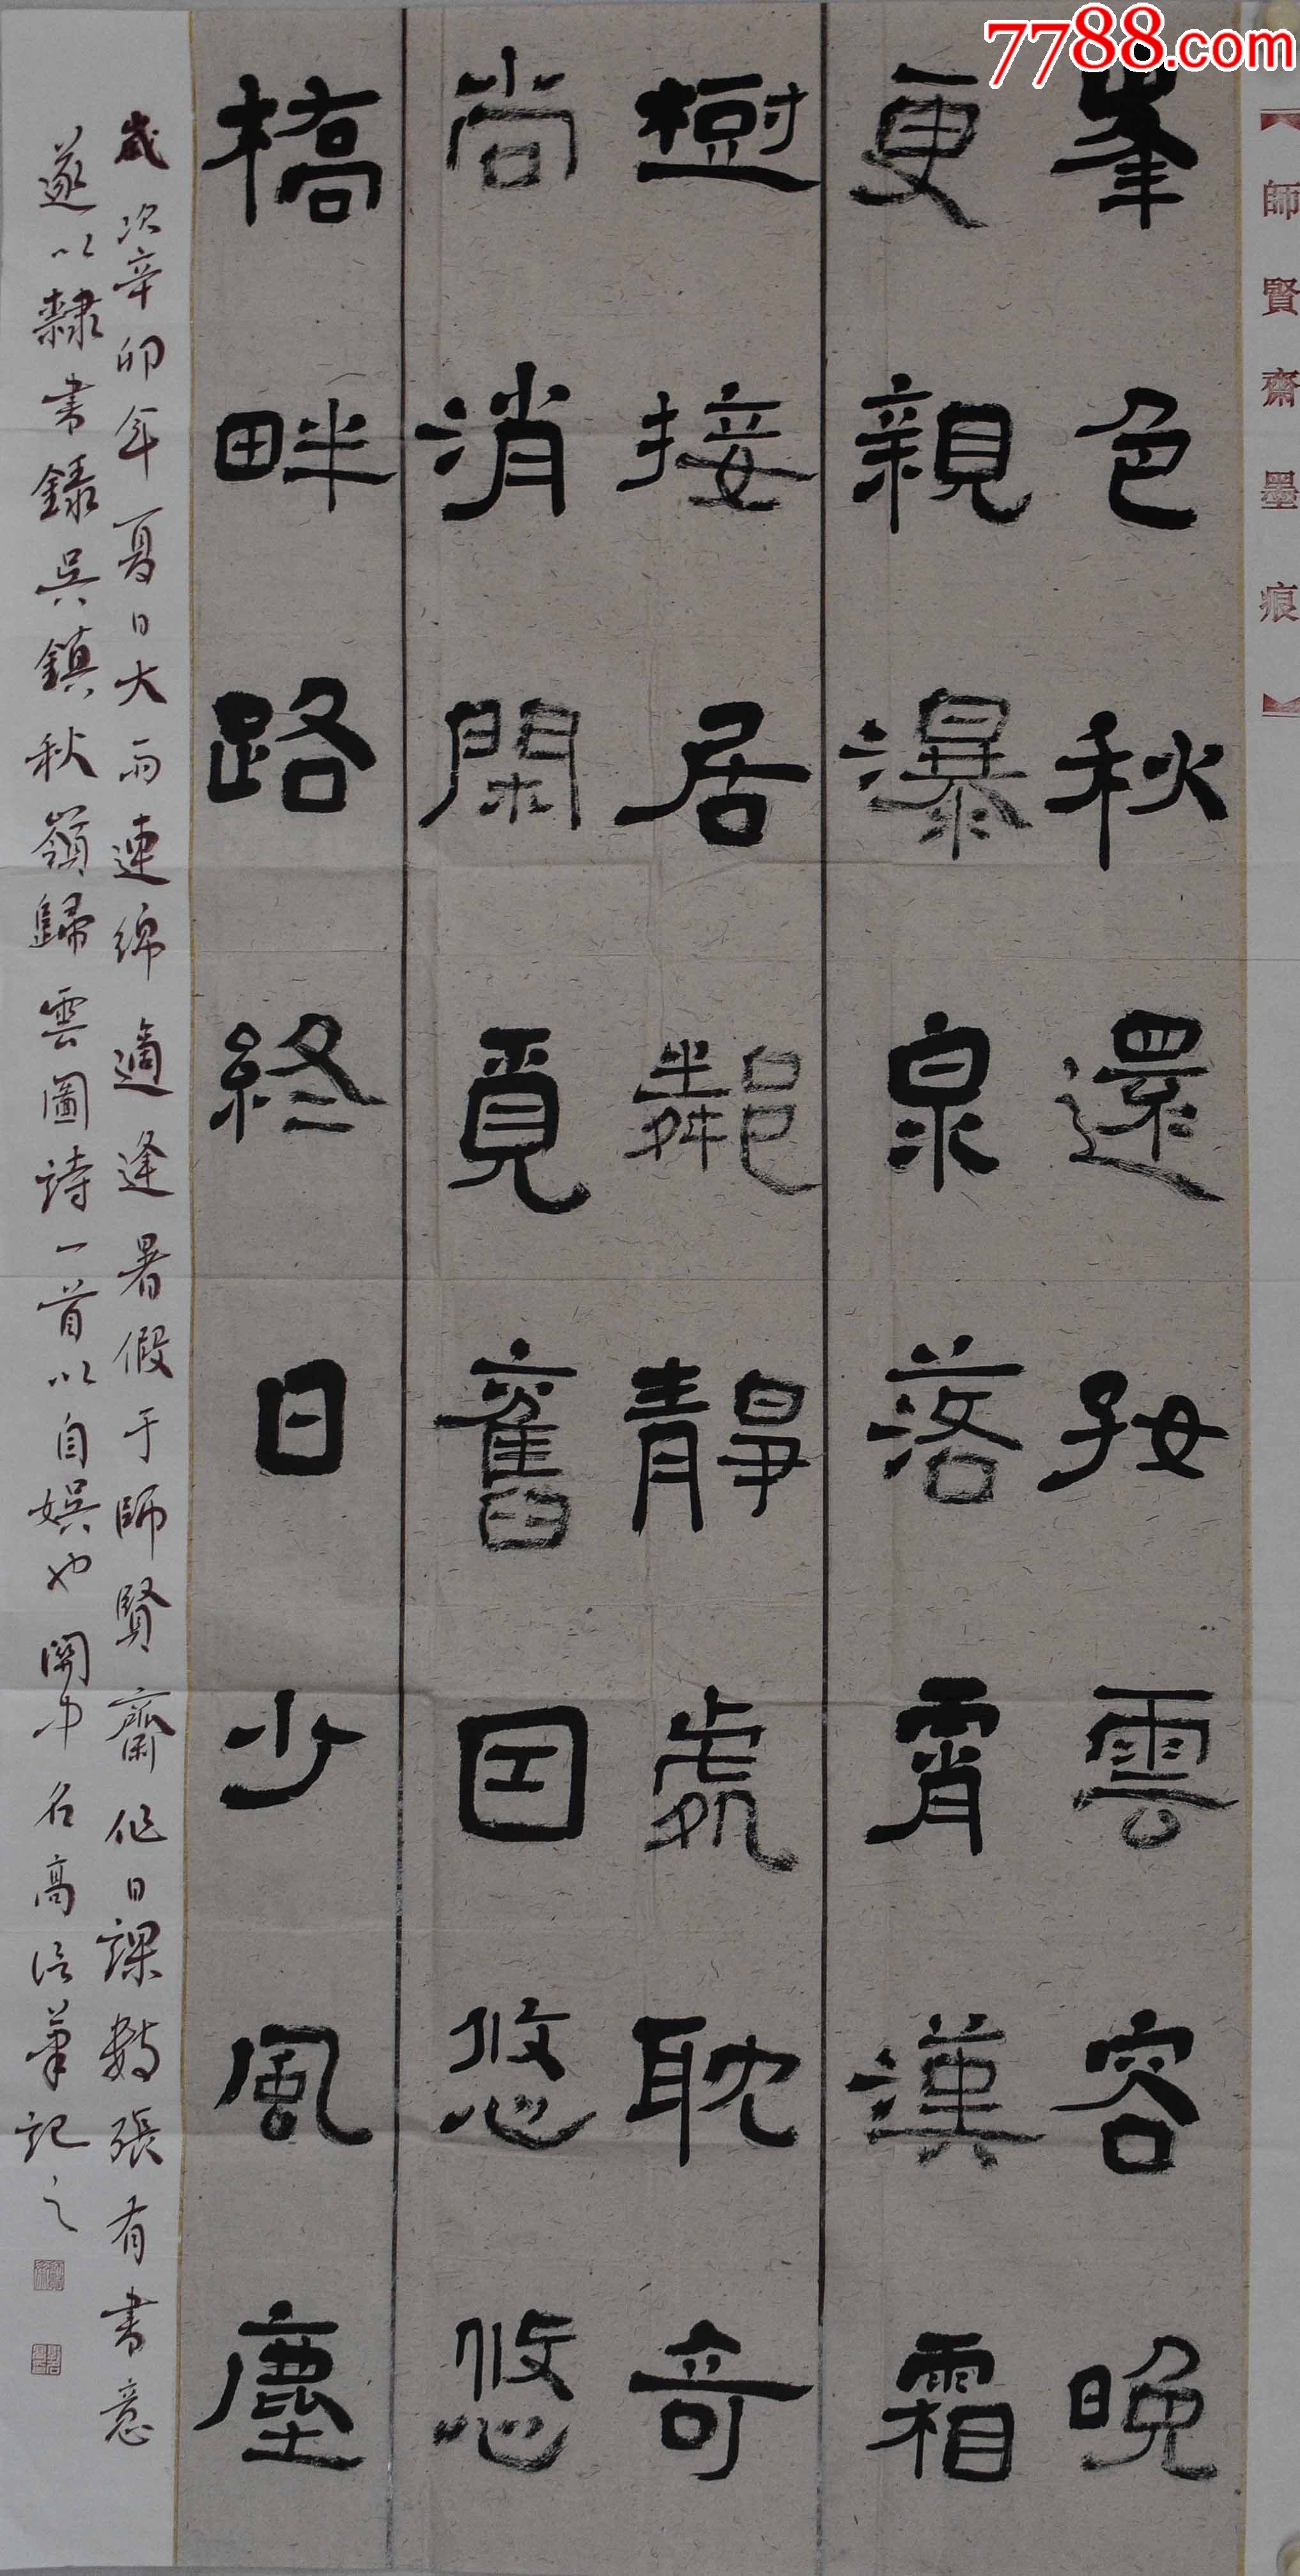 7788.com
【師賢齋墨痕】
峯色秋還好雲容晚
更親瀑泉落霄漢霜
樹接居鄰静處耽奇
尚消閑覓舊因悠悠
橋畔路終日少風塵
歲次辛卯年夏日大雨連綿適逢暑假于師賢齋作日課数張有書意
遂以隸書錄吳鎮秋嶺歸雲圖詩一首以自娱也關中石高信筆記之